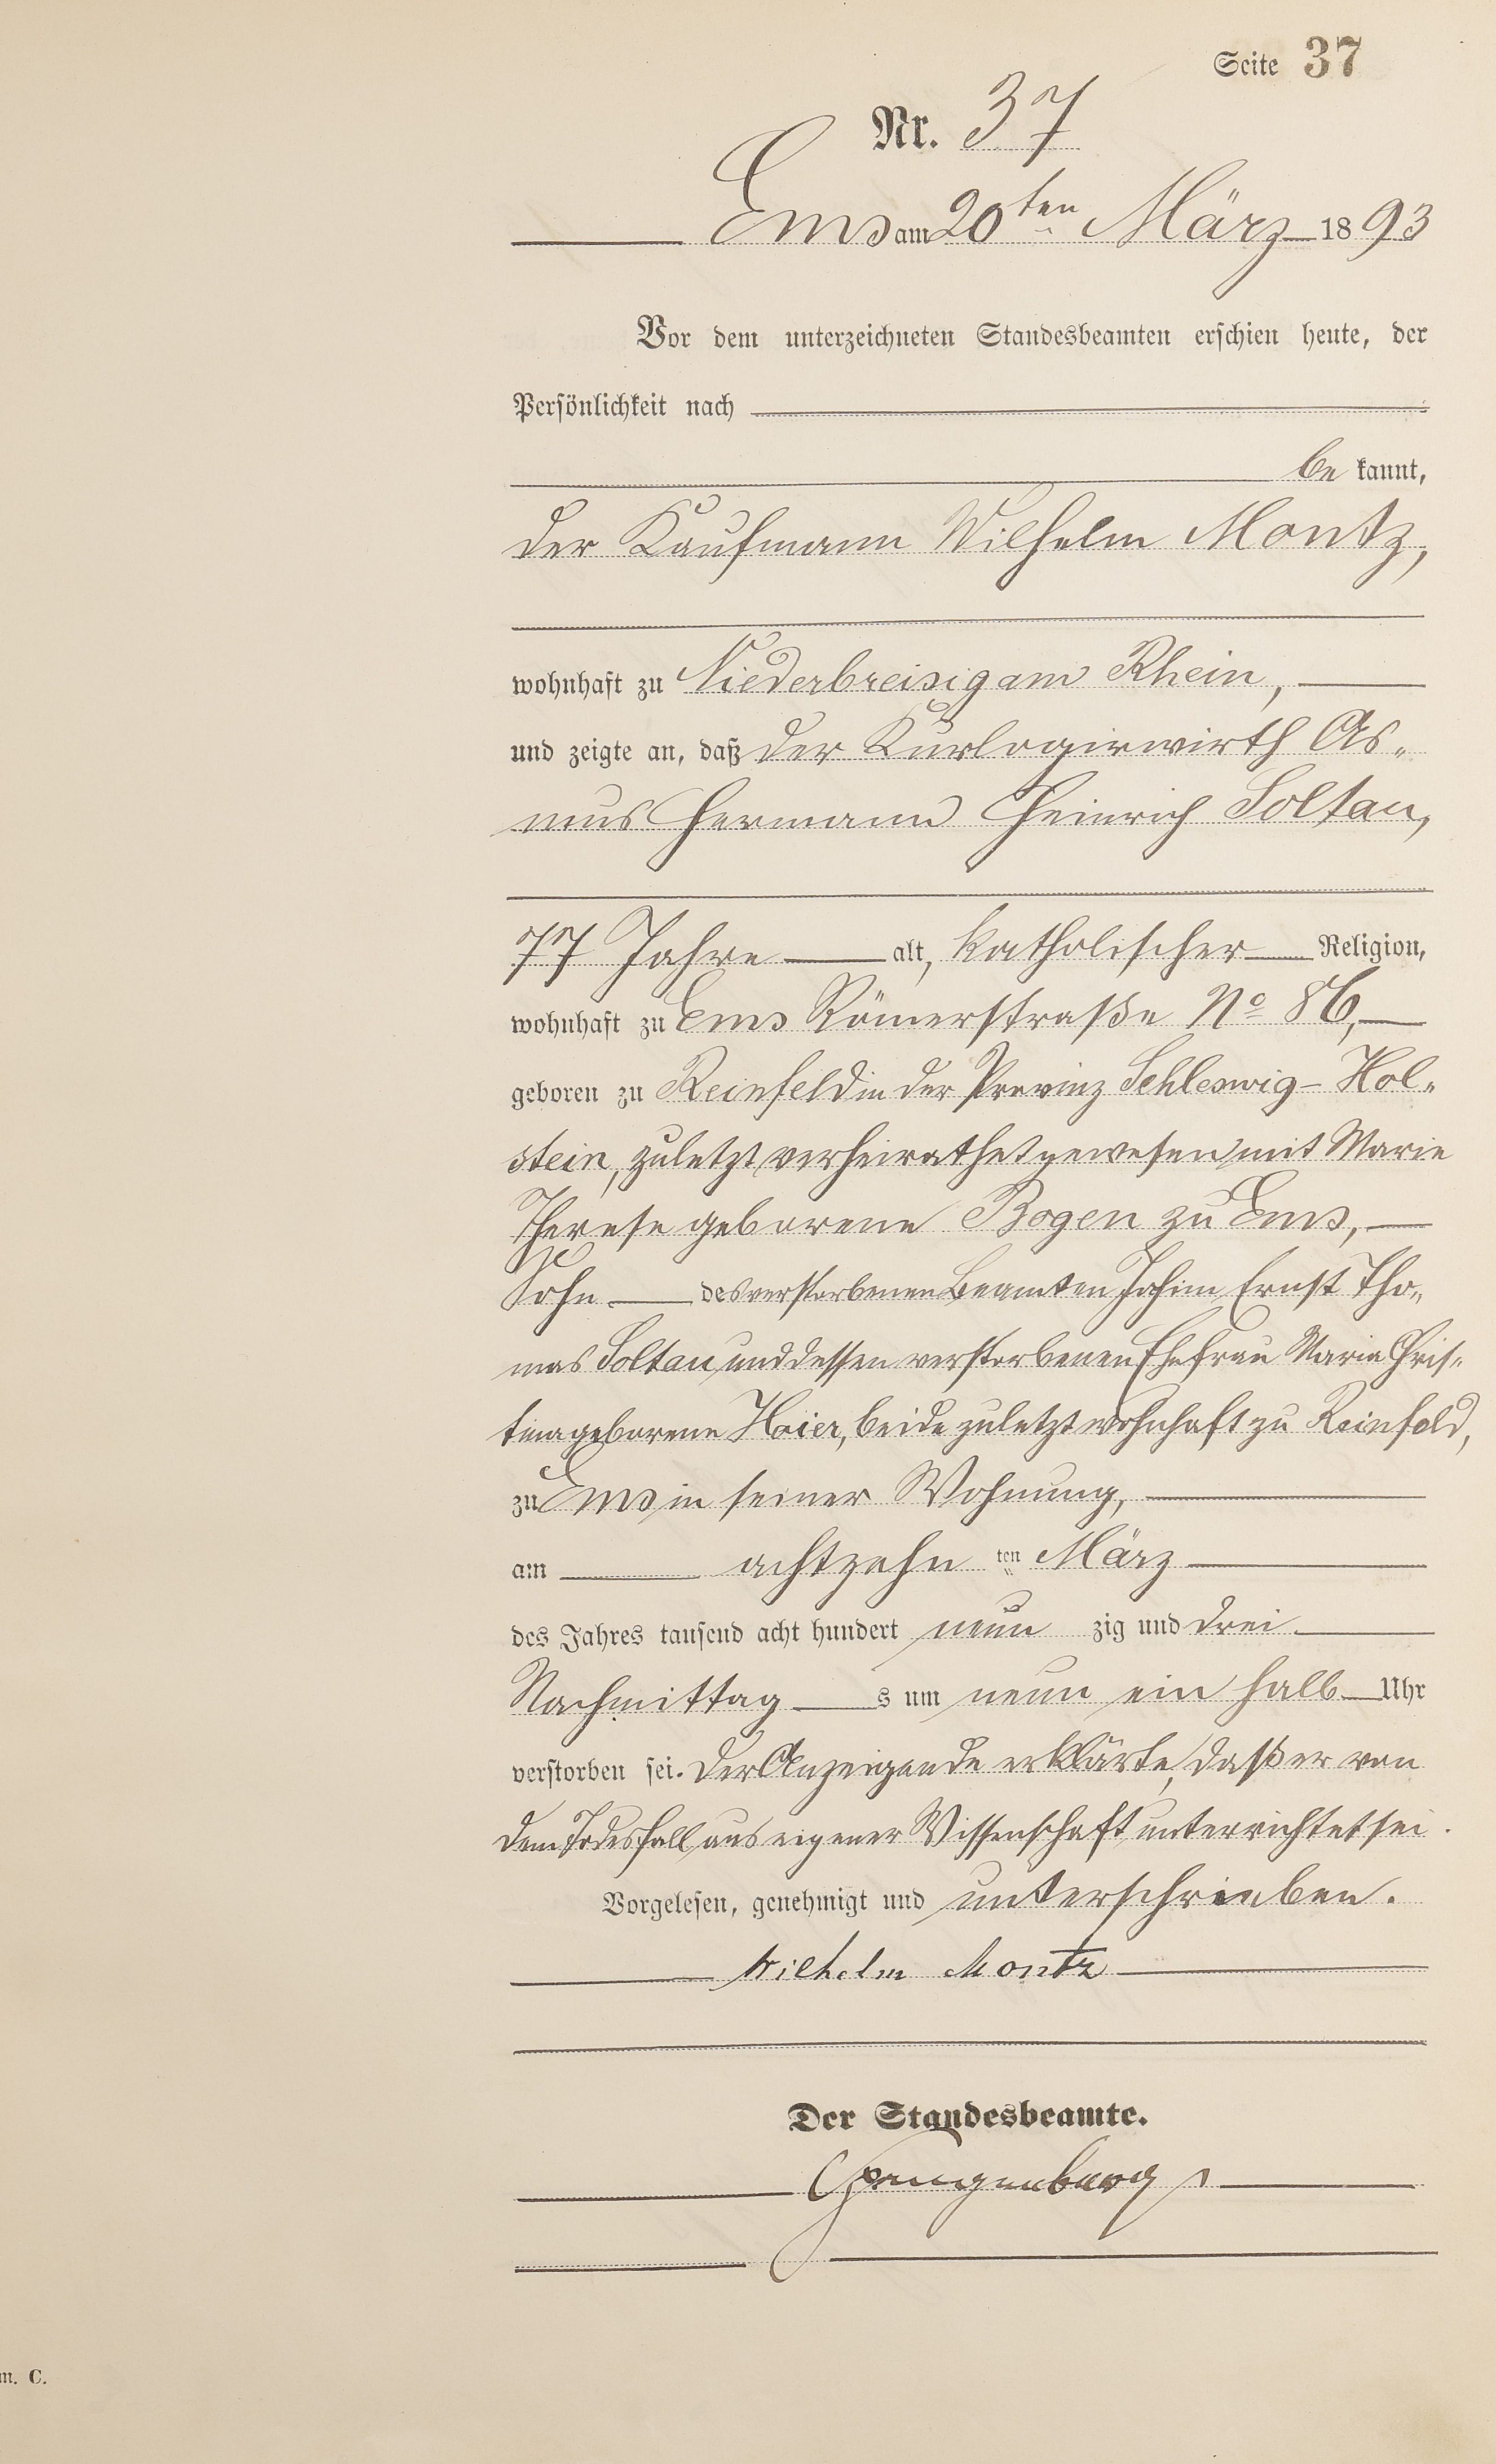 Seite 37
Nr. 37
Ems am 20ten März 1893
Vor dem unterzeichneten Standesbeamten erschien heute, der
Persönlichkeit nach
be kannt,
der Kaufmann Wilhelm Montz,
wohnhaft zu Niederbreisig am Rhein,
und zeigte an, daß der Kurlogirwirth As„
mus Hermann Heinrich Soltau,
77 Jahre alt, katholischer Religion,
wohnhaft zu Ems Römerstraße No 86,
geboren zu Reinfeld in der Provinz Schleswig-Hol„
stein, zuletzt verheirathet gewesen mit Marie
Therese geborene Bogen zu Ems,
Sohn des verstorbenen Beamten Johim Ernst Tho„
mas Soltau und dessen verstorbenen Ehefrau Maria Chris„
tina geborene Hoier, beide zuletzt wohnhaft zu Reinfeld,
zu Ems in seiner Wohnung,
am achtzehn ten März
des Jahres tausend acht hundert neun zig und drei
Nachmittag s um neun ein halb Uhr
verstorben sei. Der Anzeigende erklärte, daß er von
dem Todesfall aus eigener Wissenschaft unterrichtet sei.
Vorgelesen, genehmigt und unterschrieben.
Wilhelm Montz
Der Standesbeamte.
m. C.